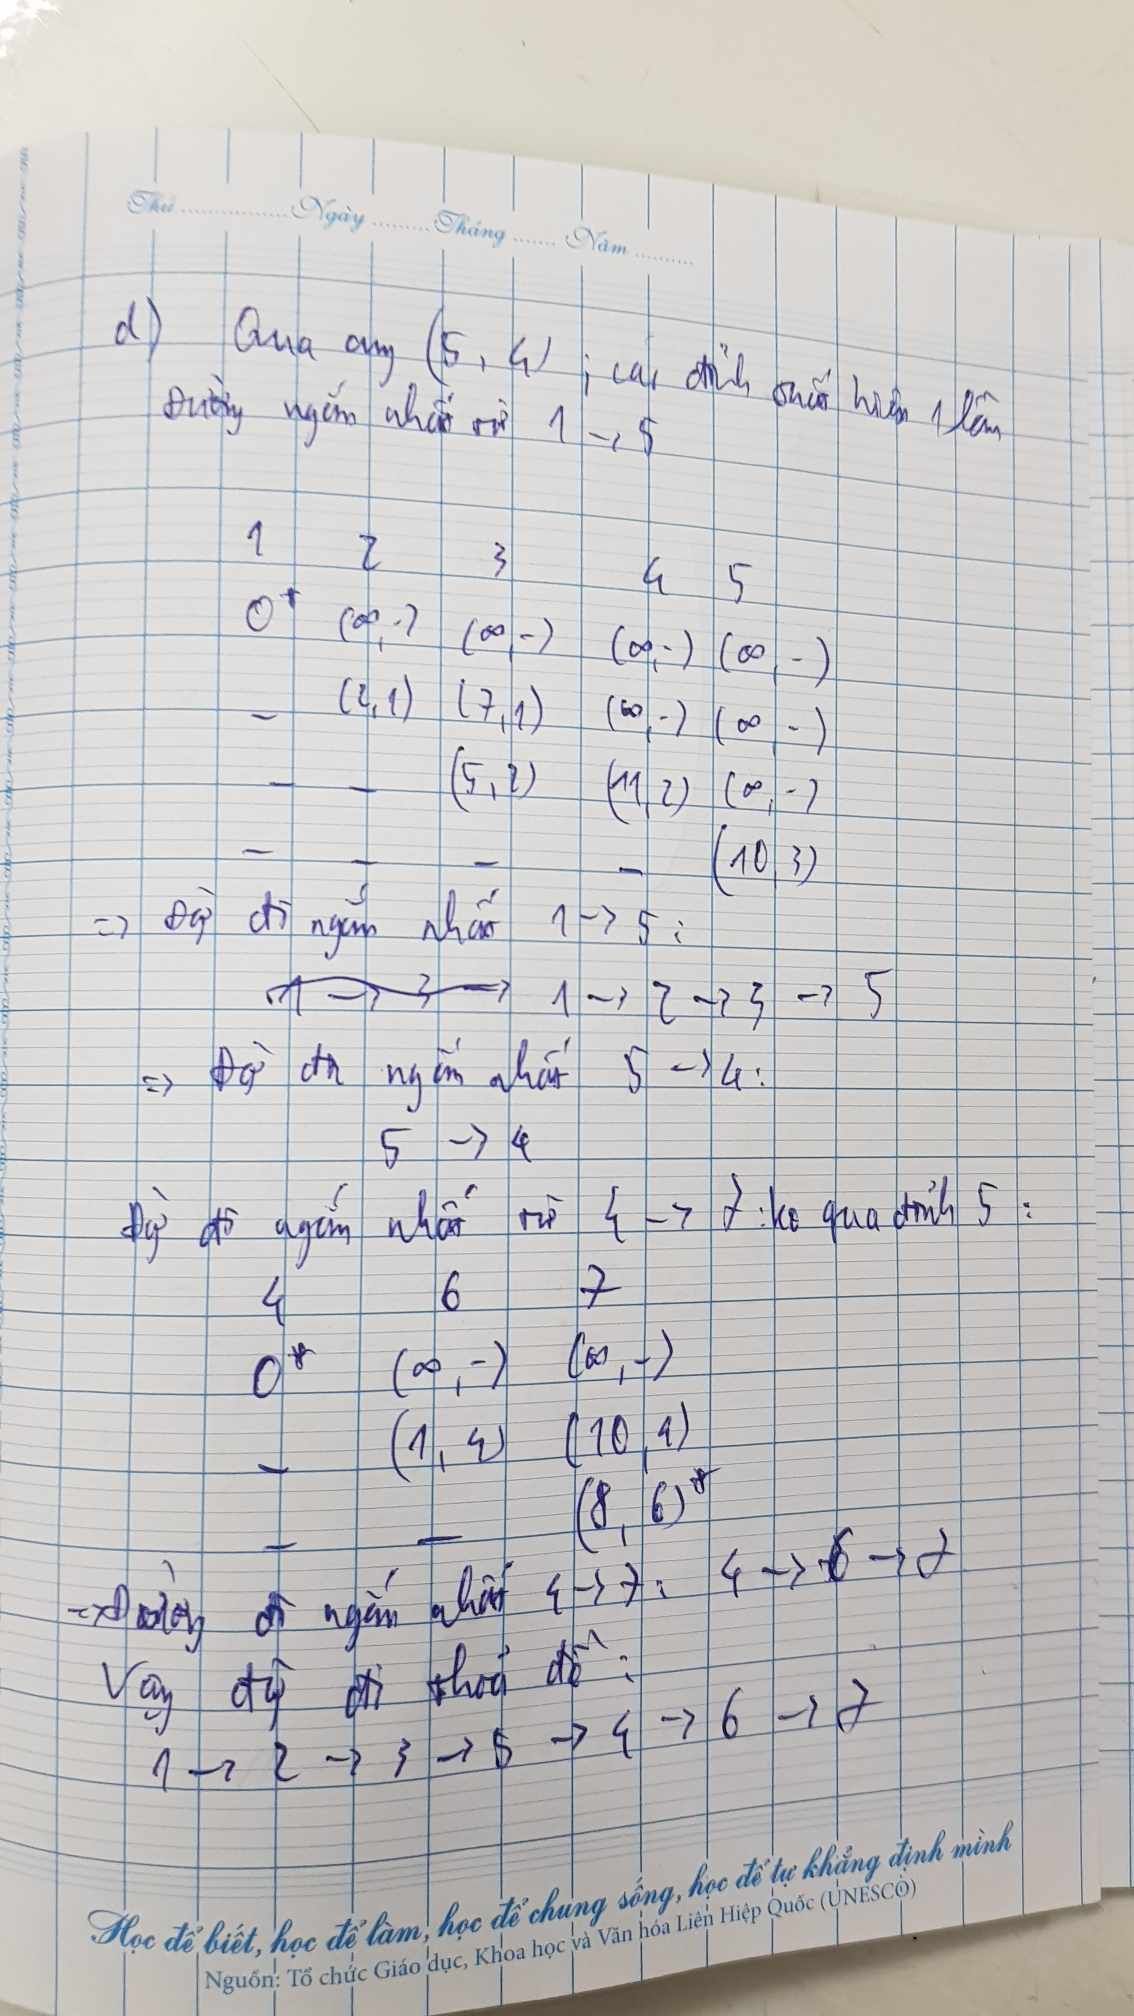 Thứ ................ Ngày ......... Tháng ....... Năm ..........
d) Qua cung (5, 4) ; các đỉnh xuất hiện 1 lần
Đường ngắn nhất từ 1 → 5
1 2 3 4 5
0* (∞,-) (∞,-) (∞,-) (∞,-)
- (2,1) (7,1) (∞,-) (∞,-)
- - (5,2) (11,2) (∞,-)
- - - - (10,3)
=> Đg đi ngắn nhất 1 → 5 :
1 → 3 → 1 → 2 → 3 → 5
=> Đg đi ngắn nhất 5 → 4 :
5 → 4
Đg đi ngắn nhất từ 4 → 7 : ko qua đỉnh 5 :
4 6 7
0* (∞,-) (∞,-)
- (1,4) (10,4)
- - (8,6)*
=> Đường đi ngắn nhất 4 → 7 : 4 → 6 → 7
Vậy đg đi thoả đề :
1 → 2 → 3 → 5 → 4 → 6 → 7
Học để biết, học để làm, học để chung sống, học để tự khẳng định mình
Nguồn: Tổ chức Giáo dục, Khoa học và Văn hóa Liên Hiệp Quốc (UNESCO)